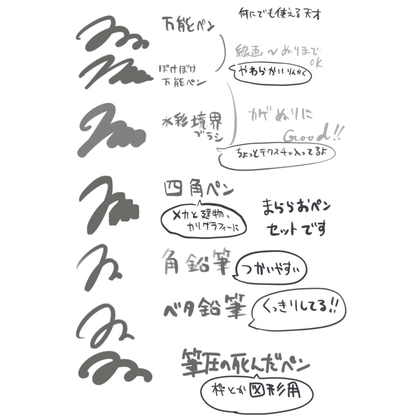 万能ペン
何にでも使える天才
ぼけぼけ
万能ペン
線画〜ぬりまで
OK
やわらかいりんかく
水彩境界
ブラシ
カゲぬりに
Good!!
ちょっとテクスチャ入ってるよ
四角ペン
メカと建物、
カリグラフィーに
まららおペン
セットです
角鉛筆
つかいやすい
ベタ鉛筆
くっきりしてる!!
筆圧の死んだペン
枠とか図形用